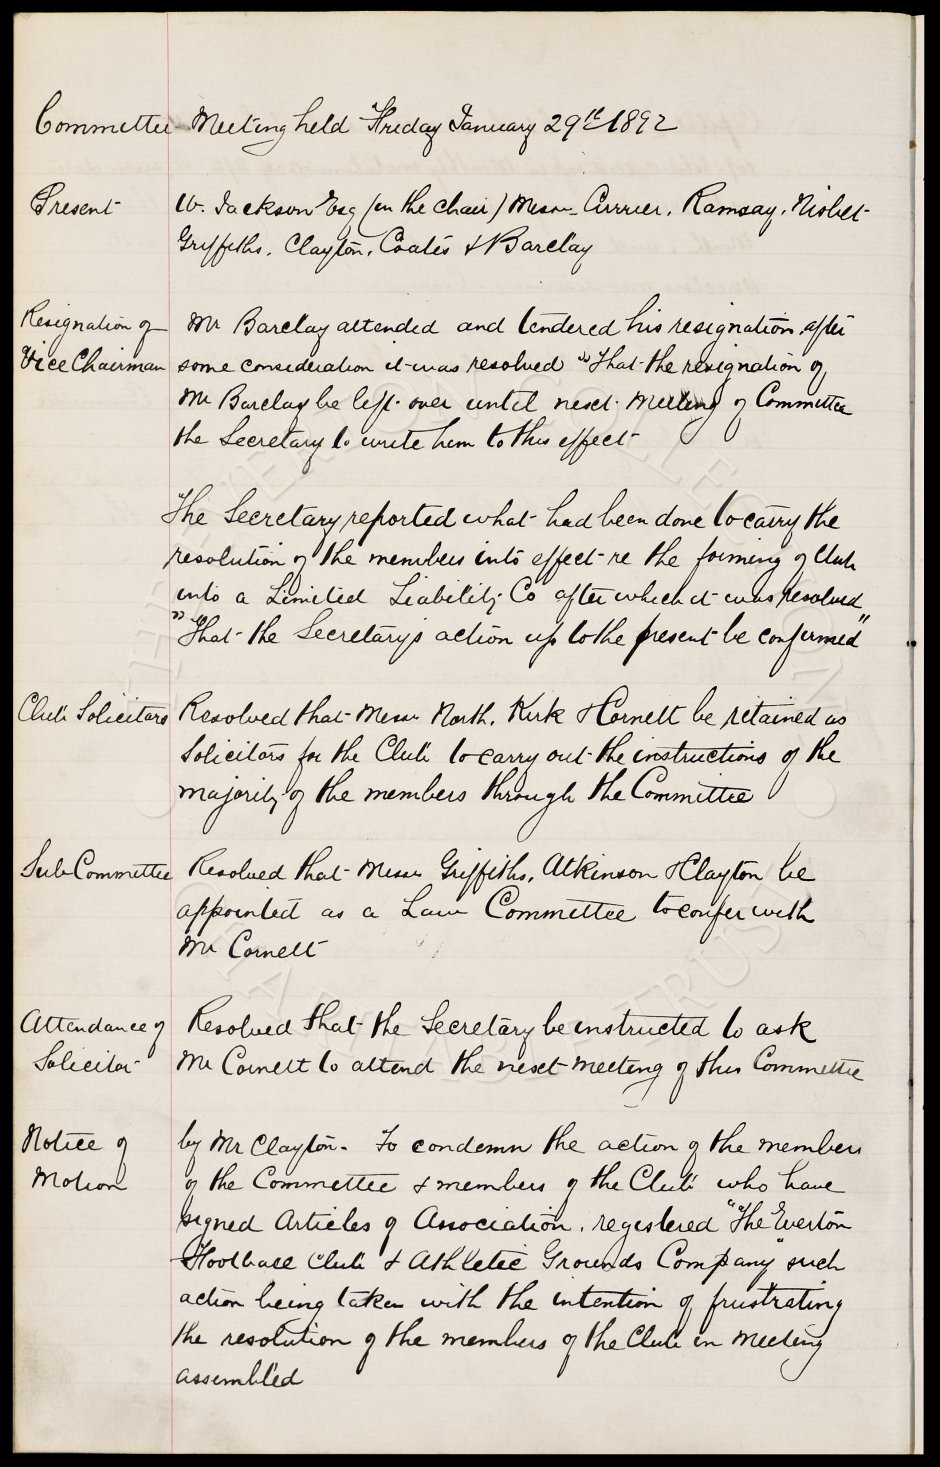 Committee Meeting held Friday January 29th 1892
Present W. Jackson Esq (in the chair) Messrs Currier, Ramsay, Nisbet
Griffiths, Clayton, Coates & Barclay
Resignation of Vice Chairman
Mr Barclay attended and tendered his resignation, after
some consideration it was resolved "That the resignation of
Mr Barclay be left over until next meeting of Committee
the Secretary to write him to this effect
The Secretary reported what had been done to carry the
resolution of the members into effect re the forming of Club
into a Limited Liability Co after which it was resolved
"That the Secretary's action up to the present be confirmed"
Club Solicitors Resolved that Messrs North, Kirk & Cornett be retained as
Solicitors for the Club to carry out the instructions of the
majority of the members through the Committee
Sub Committee Resolved that Messrs Griffiths, Atkinson & Clayton be
appointed as a Law Committee to confer with
Mr Cornett
Attendance of Solicitor
Resolved that the Secretary be instructed to ask
Mr Cornett to attend the next meeting of this Committee
Notice of Motion
by Mr Clayton - To condemn the action of the members
of the Committee & members of the Club who have
signed Articles of Association, registered "The Everton
Football Club & Athletic Grounds Company" such
action being taken with the intention of frustrating
the resolution of the members of the Club in meeting
assembled
EVERTON COLLECTION
CHARITABLE TRUST